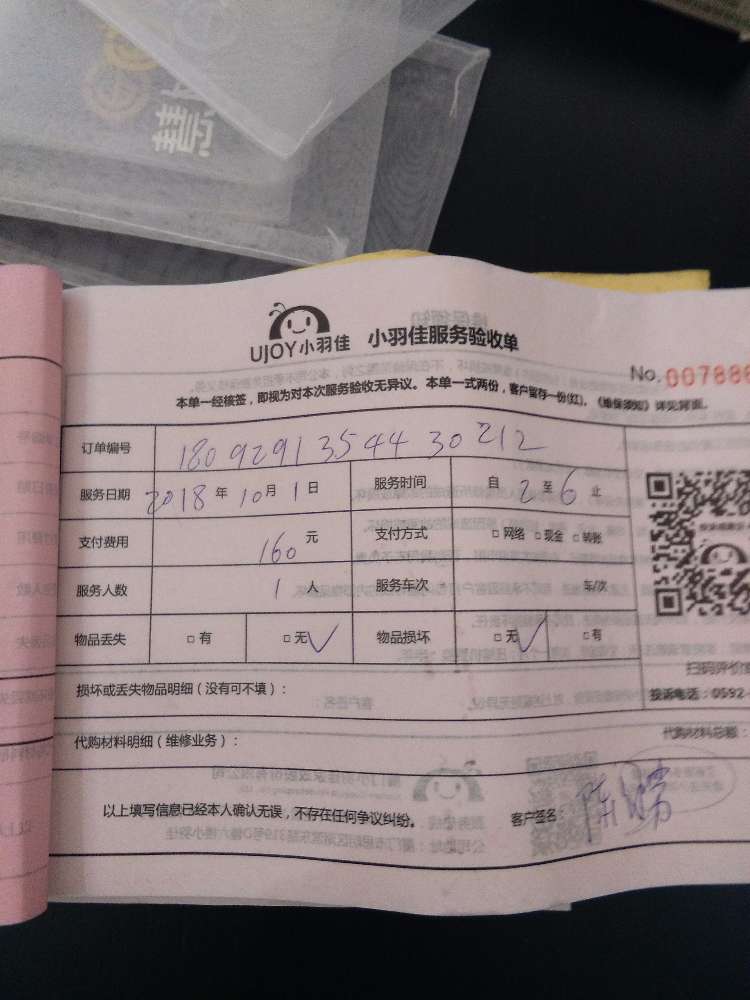 慧
UJOY小羽佳 小羽佳服务验收单
No. 007888
本单一经核签，即视为对本次服务验收无异议。本单一式两份，客户留存一份(红)。《维保须知》详见背面。
订单编号 18092913544430212
服务日期 2018年10月1日 服务时间 自2至6止
支付费用 160元 支付方式 □网络 □现金 □转账
服务人数 1人 服务车次 车/次
物品丢失 □有 □无√ 物品损坏 □无√ □有
损坏或丢失物品明细（没有可不填）：
扫码评价
投诉电话：0592
代购材料明细（维修业务）： 代购材料总额：
以上填写信息已经本人确认无误，不存在任何争议纠纷。 客户签名：陈